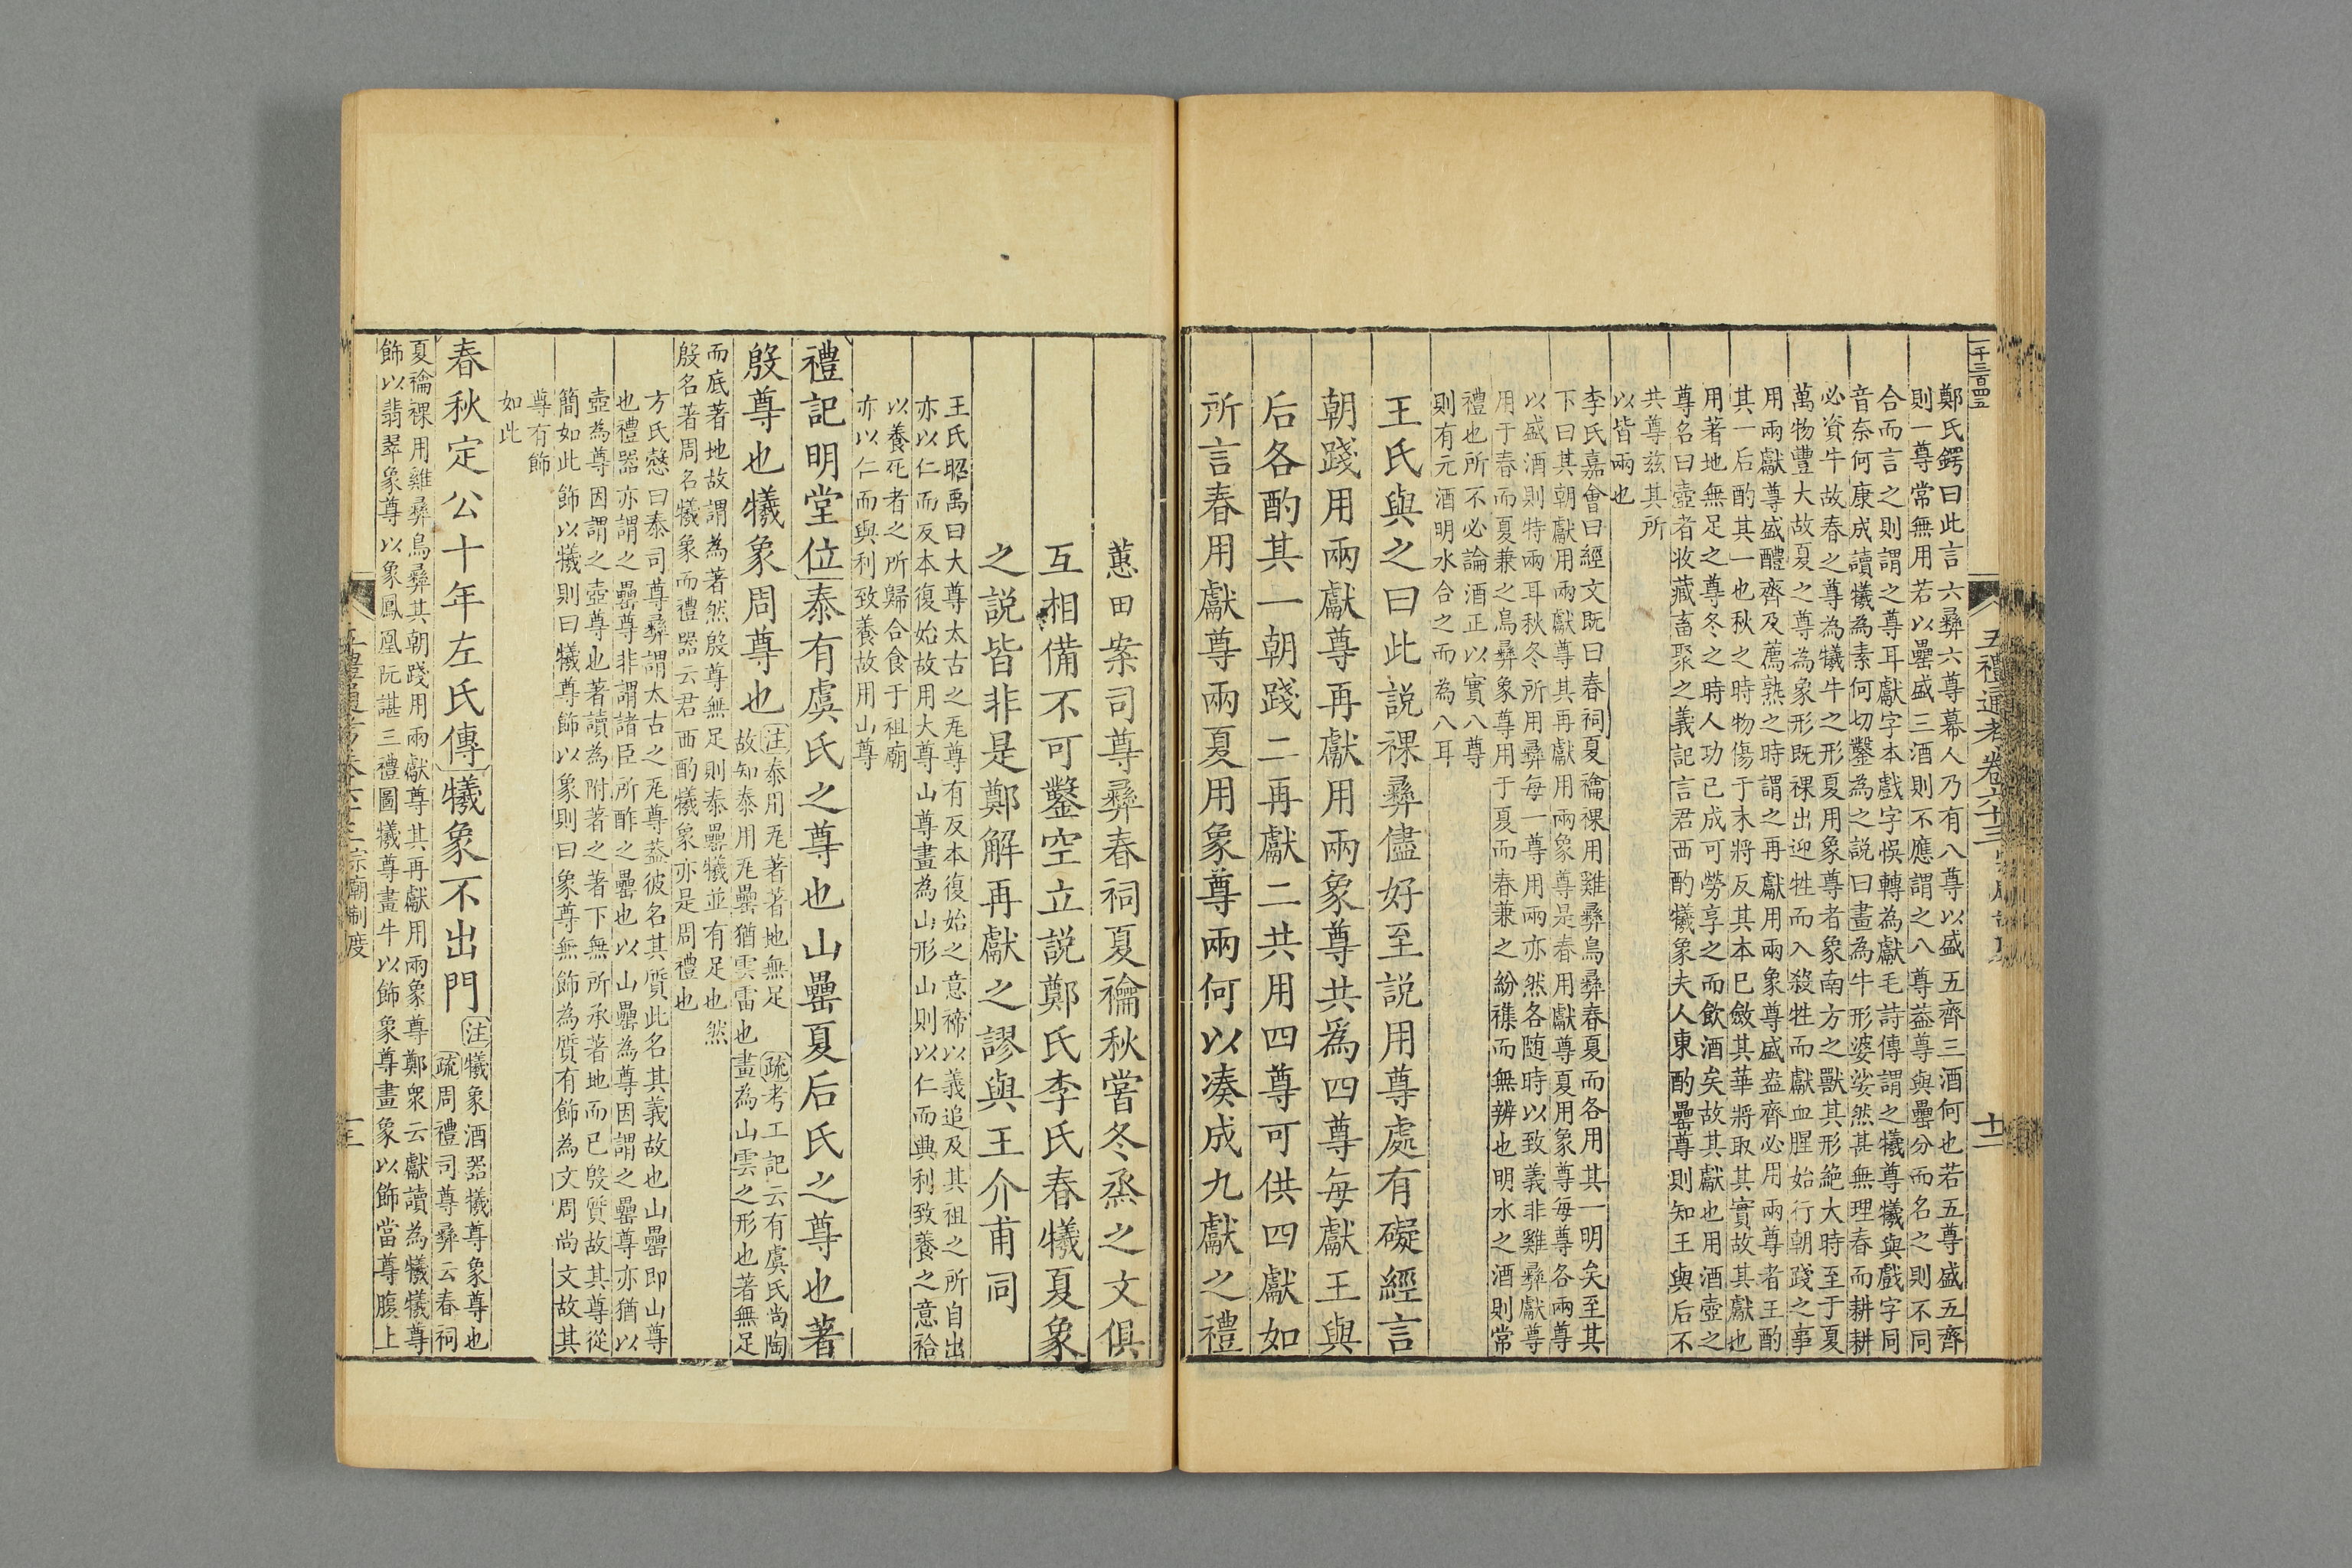 一千三百四五
五禮通考卷六十三
十二
鄭氏鍔曰此言六彝六尊幕人乃有八尊以盛五齊三酒何也若五尊盛五齊
則一尊常無用若以罍盛三酒則不應謂之八尊益尊與罍分而名之則不同
合而言之則謂之尊耳獻字本戲字悞轉為獻毛詩傳謂之犧尊犧與戲字同
音奈何康成讀犧為素何切鑿為之說曰畫為牛形婆娑然甚無理春而耕耕
必資牛故春之尊為犧牛之形夏用象尊者象南方之獸其形絶大時至于夏
萬物豐大故夏之尊為象形既祼出迎牲而入殺牲而獻血腥始行朝踐之事
用兩獻尊盛醴齊及薦熟之時謂之再獻用兩象尊盛盎齊必用兩尊者王酌
其一后酌其一也秋之時物傷于末將反其本已斂其華將取其實故其獻也
用著地無足之尊冬之時人功已成可勞享之而飲酒矣故其獻也用酒壺之
尊名曰壺者收藏畜聚之義記言君西酌犧象夫人東酌罍尊則知王與后不
共尊兹其所
以皆兩也
李氏嘉會曰經文既曰春祠夏禴祼用雞彝鳥彝春夏而各用其一明矣至其
下曰其朝獻用兩獻尊其再獻用兩象尊是春用獻尊夏用象尊每尊各兩尊
以盛酒則特兩耳秋冬所用彝每一尊用兩亦然各随時以致義非雞彝獻尊
用于春而夏兼之鳥彝象尊用于夏而春兼之紛襍而無辨也明水之酒則常
禮也所不必論酒正以實八尊
則有元酒明水合之而為八耳
王氏與之曰此說祼彝儘好至説用尊處有礙經言
朝踐用兩獻尊再獻用兩象尊共爲四尊每獻王與
后各酌其一朝踐二再獻二共用四尊可供四獻如
所言春用獻尊兩夏用象尊兩何以凑成九獻之禮
蕙田案司尊彝春祠夏禴秋嘗冬烝之文俱
互相備不可鑿空立説鄭氏李氏春犧夏象
之説皆非是鄭解再獻之謬與王介甫同
王氏昭禹曰大尊太古之瓦尊有反本復始之意禘以義追及其祖之所自出
亦以仁而反本復始故用大尊山尊畫為山形山則以仁而興利致養之意祫
以養死者之所歸合食于祖廟
亦以仁而與利致養故用山尊
禮記明堂位泰有虞氏之尊也山罍夏后氏之尊也著
殷尊也犧象周尊也注泰用瓦著著地無足疏考工記云有虞氏尚陶
故知泰用瓦罍猶雲雷也畫為山雲之形也著無足
而底著地故謂為著然殷尊無足則泰罍犧並有足也然
殷名著周名犧象而禮器云君西酌犧象亦是周禮也
方氏慤曰泰司尊彝謂太古之瓦尊益彼名其質此名其義故也山罍即山尊
也禮器亦謂之罍尊非謂諸臣所酢之罍也以山罍為尊因謂之罍尊亦猶以
壺為尊因謂之壺尊也著讀為附著之著下無所承著地而已殷質故其尊從
簡如此飾以犧則曰犧尊飾以象則曰象尊無飾為質有飾為文周尚文故其
尊有飾
如此
春秋定公十年左氏傳犧象不出門注犧象酒器犧尊象尊也
疏周禮司尊彝云春祠
夏禴祼用雞彝鳥彝其朝踐用兩獻尊其再獻用兩象尊鄭衆云獻讀為犧犧尊
飾以翡翠象尊以象鳳凰阮諶三禮圖犧尊畫牛以飾象尊畫象以飾當尊腹上
宗廟制度